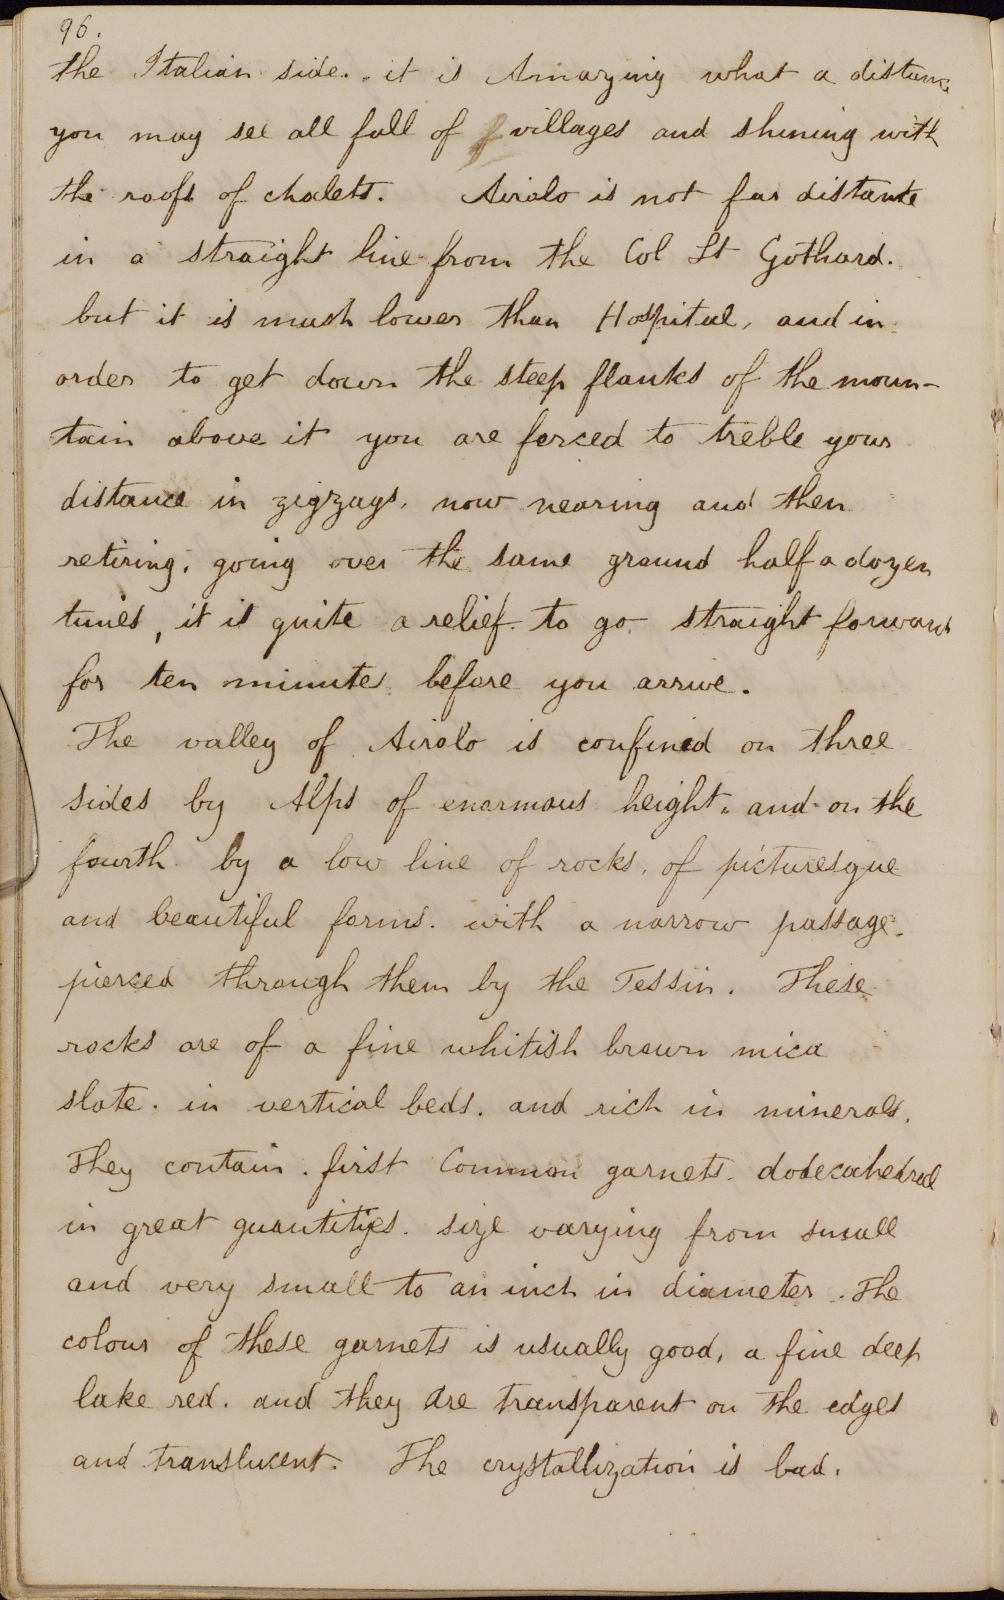 96.
the Italian side. it is Amazing what a distance
you may see all full of villages and shining with
the roofs of chalets. Airolo is not far distante
in a straight line from the Col St Gothard.
but it is much lower than Hospital, and in
order to get down the steep flanks of the moun-
tain above it you are forced to treble your
distance in zigzags, now nearing and then
retiring, going over the same ground half a dozen
times, it is quite a relief to go straight forward
for ten minutes before you arrive.
The valley of Airolo is confined on three
sides by Alps of enormous height, and on the
fourth by a low line of rocks, of picturesque
and beautiful forms. with a narrow passage
pierced through them by the Tessin. These
rocks are of a fine whitish brown mica
slate. in vertical beds. and rich in minerals.
They contain. first Common garnets. dodecahedral
in great quantities. size varying from small
and very small to an inch in diameter. The
colour of these garnets is usually good, a fine deep
lake red. and they are transparent on the edges
and translucent. The crystallization is bad.